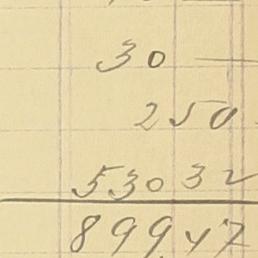 30 —
250
53032
89947